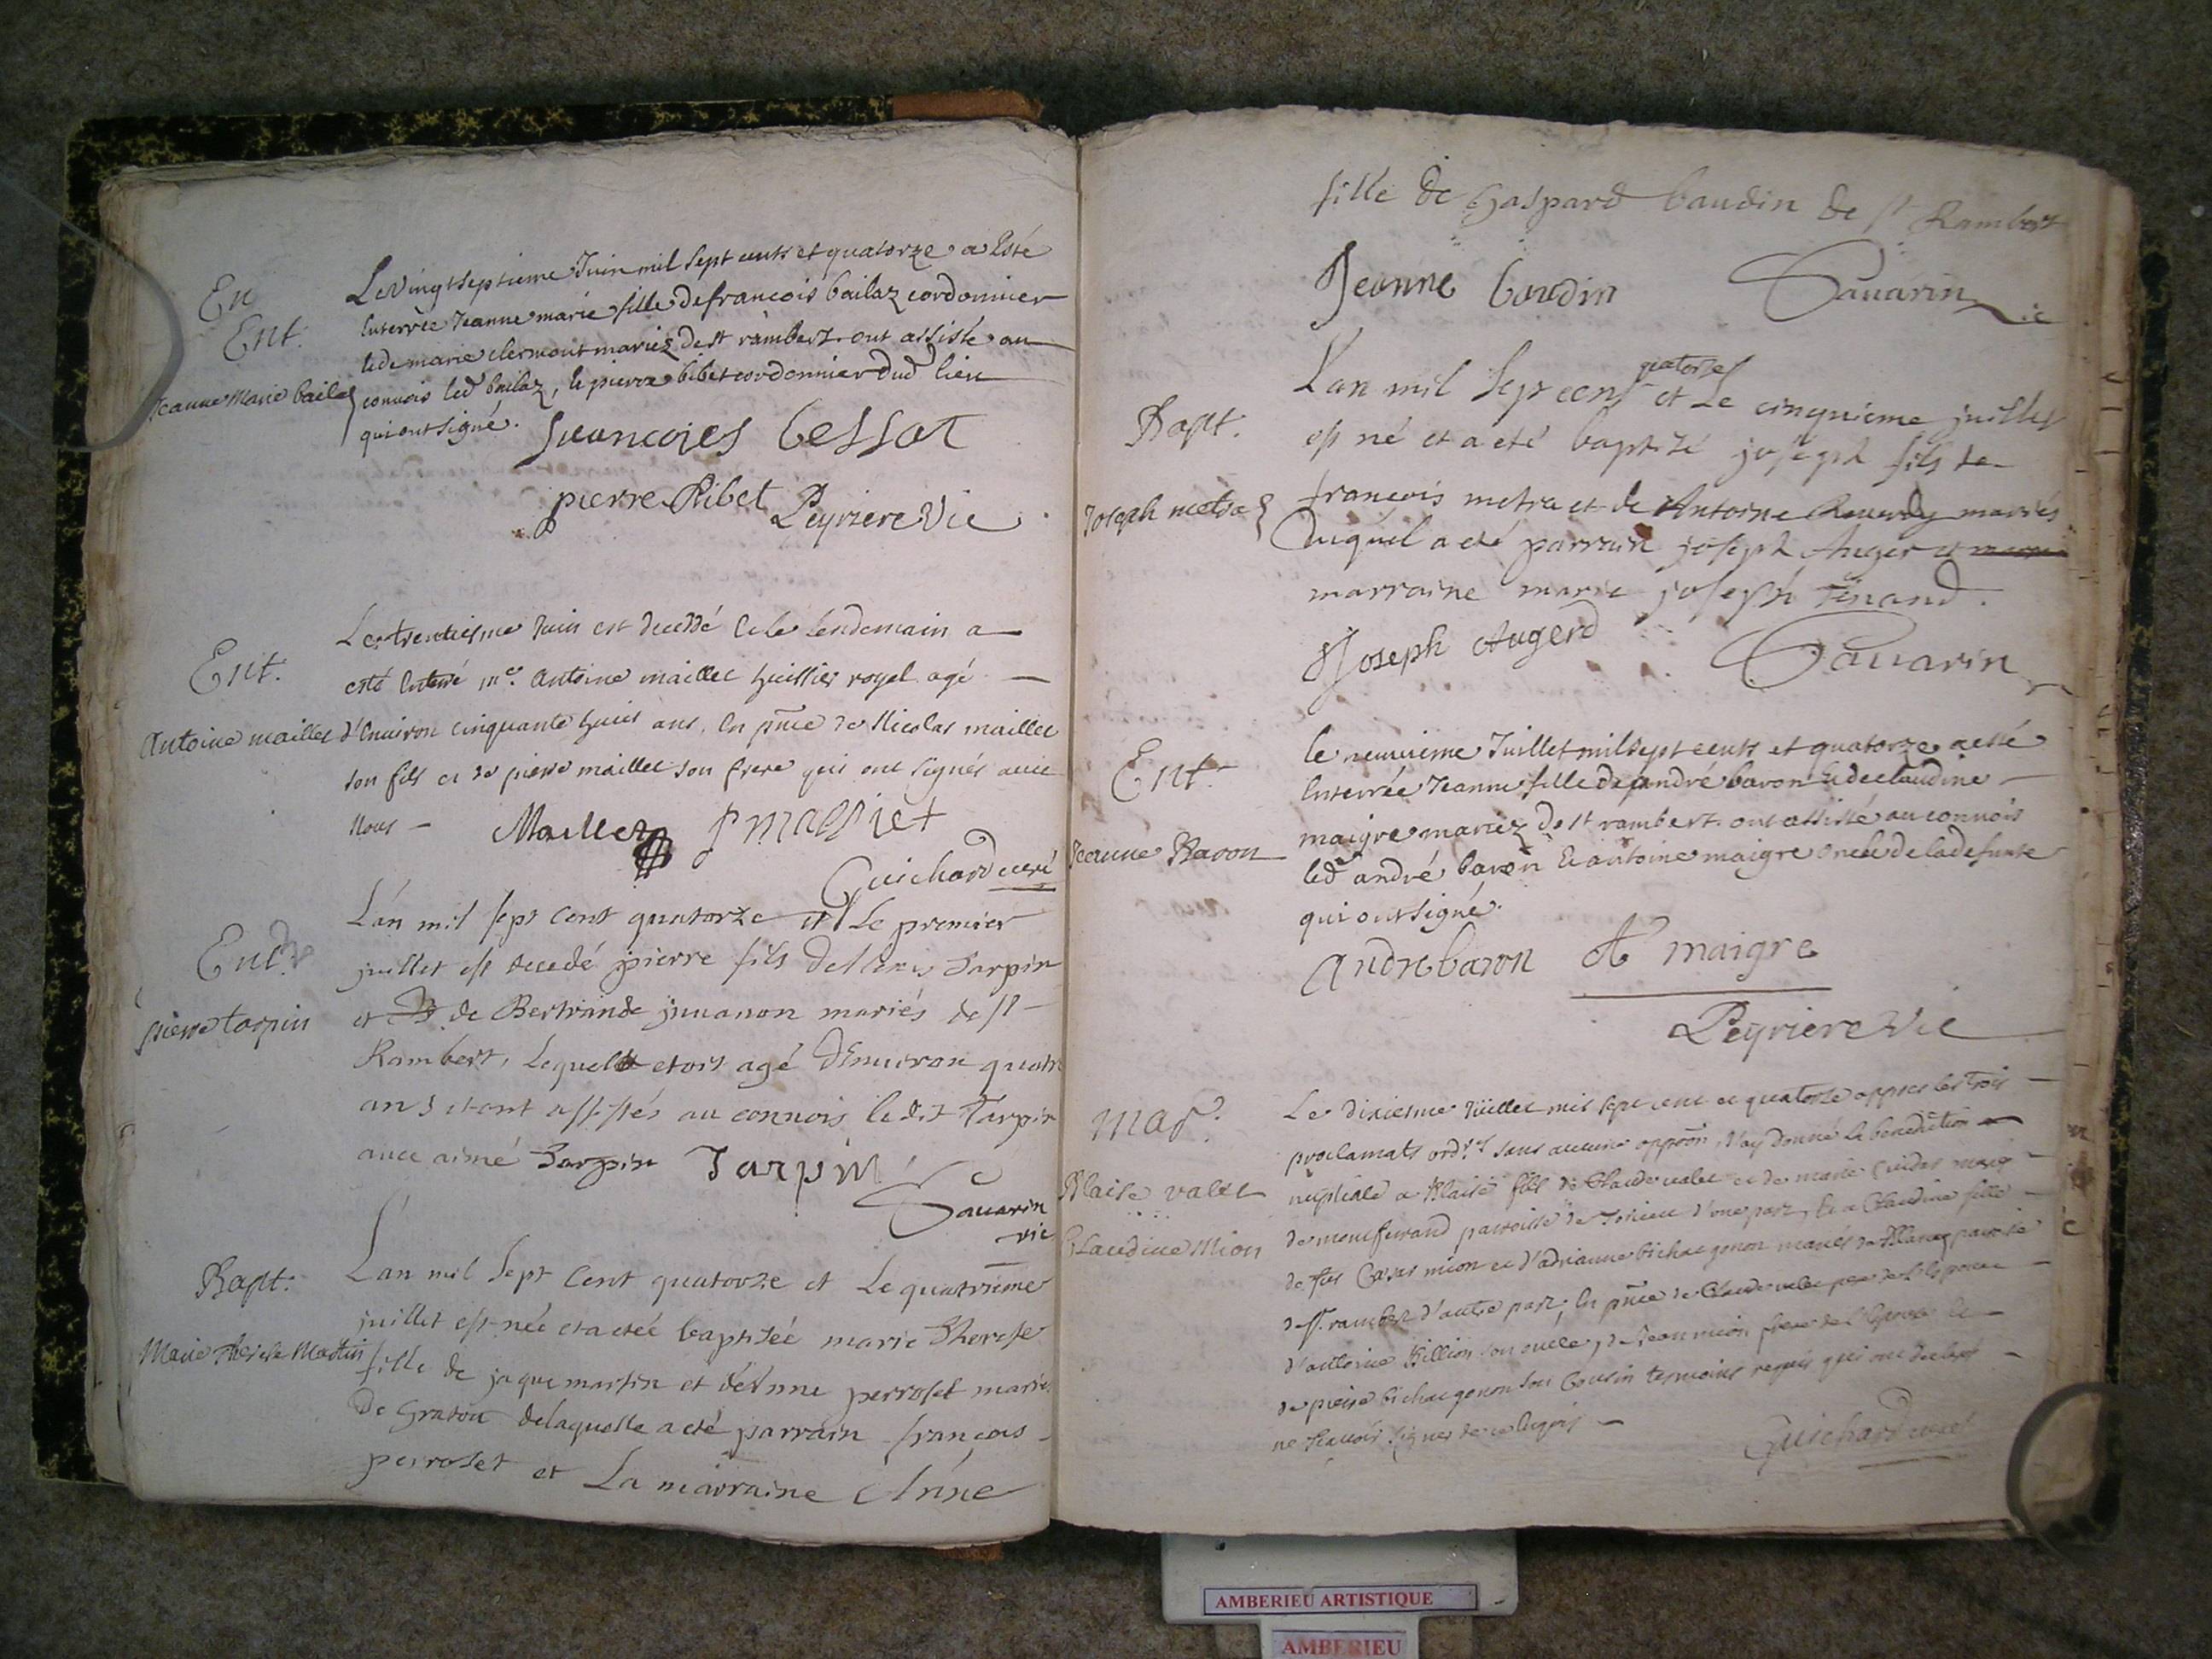 En
Ent.
Jeanne Marie bailaz
Le Vingt septieme Juin mil sept cents et quatorze a Esté
Enterrée Jeanne marie fille de francois bailaz cordonnier
et de marie clermont mariez de st rambert. ont assisté au
convois led bailaz, et pierre bibet cordonnier dud lieu
qui ont signé.
pierre Ribet Peyriere Vic
Ent.
Antoine maillet
Le trentiesme Juin est decedé et le lendemain a
esté Enterré me. Antoine maillet huissier royal agé
d'Environ cinquante huit ans, En pnce de Nicolas maillet
son fils et de pierre maillet son frere qui ont signés avec
nous
Maillet P maillet
Guichard curé
Ent.
pierre tarpin
L'an mil sept cent quatorze et Le premier
juillet est decedé pierre fils de Tarpin
et de Bertrande juuanon mariés de st
Rambert, Lequel etoit agé d'Enuiron quatre
ans et ont assistés au connois ledit Tarpin
auec aimé Tarpin Tarpin
Sauarin
vic
Bapt.
Marie Therese Martin
L'an mil Sept Cent quatorze et Le quatrième
juillet est née et a etée baptisée marie Therese
fille de jaque martin et d'Anne perroset mariés
De Graton delaquelle a eté parrain françois
perroset et La marraine Anne
fille de Gaspard baudin de st Rambert
Jeanne boudin Sauarin vic
Bapt.
Joseph metra
L'an mil Sept cens quatorse et Le cinquieme juillet
est né et a eté baptisé joseph fils de
françois metra et de Antoine Reuerdy mariés
Duquel a eté parrain joseph Auger et
marraine marie joseph Tenand.
Joseph Augerd Sauarin
Ent.
Jeanne Baron
le neuuieme Juillet mil sept cents et quatorze a esté
Enterrée Jeanne fille de andré baron Et de claudine
maigre mariez de st rambert. ont assisté au connois
led andré baron Et antoine maigre oncle de la defunte
qui ont signé.
Andre baron A maigre
Peyriere Vic
Mar.
Blaise valet
Claudine Mion
Le dixiesme Juillet mil sept cent et quatorze appres les trois
proclamats ordres sans aucune opposon, J'ay donné la benediction
nuptiale a Blaise fils de Claude valet et de marie mariés
de montferrand parroisse de Torcieu d'une part, Et a Claudine fille
de feu mion et d'adrianne bichat gonon mariés de Blanaz parroisse
de st. rambert d'autre part; En pnce de Claude valet pere de l'Espoux
d'antoine Billion son oncle, de Jean mion frere de l'Epouse et
de pierre bichat gonon son Cousin temoins requis qui ont declaré
ne scauoir signer de ce Enquis
Guichard curé
AMBERIEU ARTISTIQUE
AMBERIEU